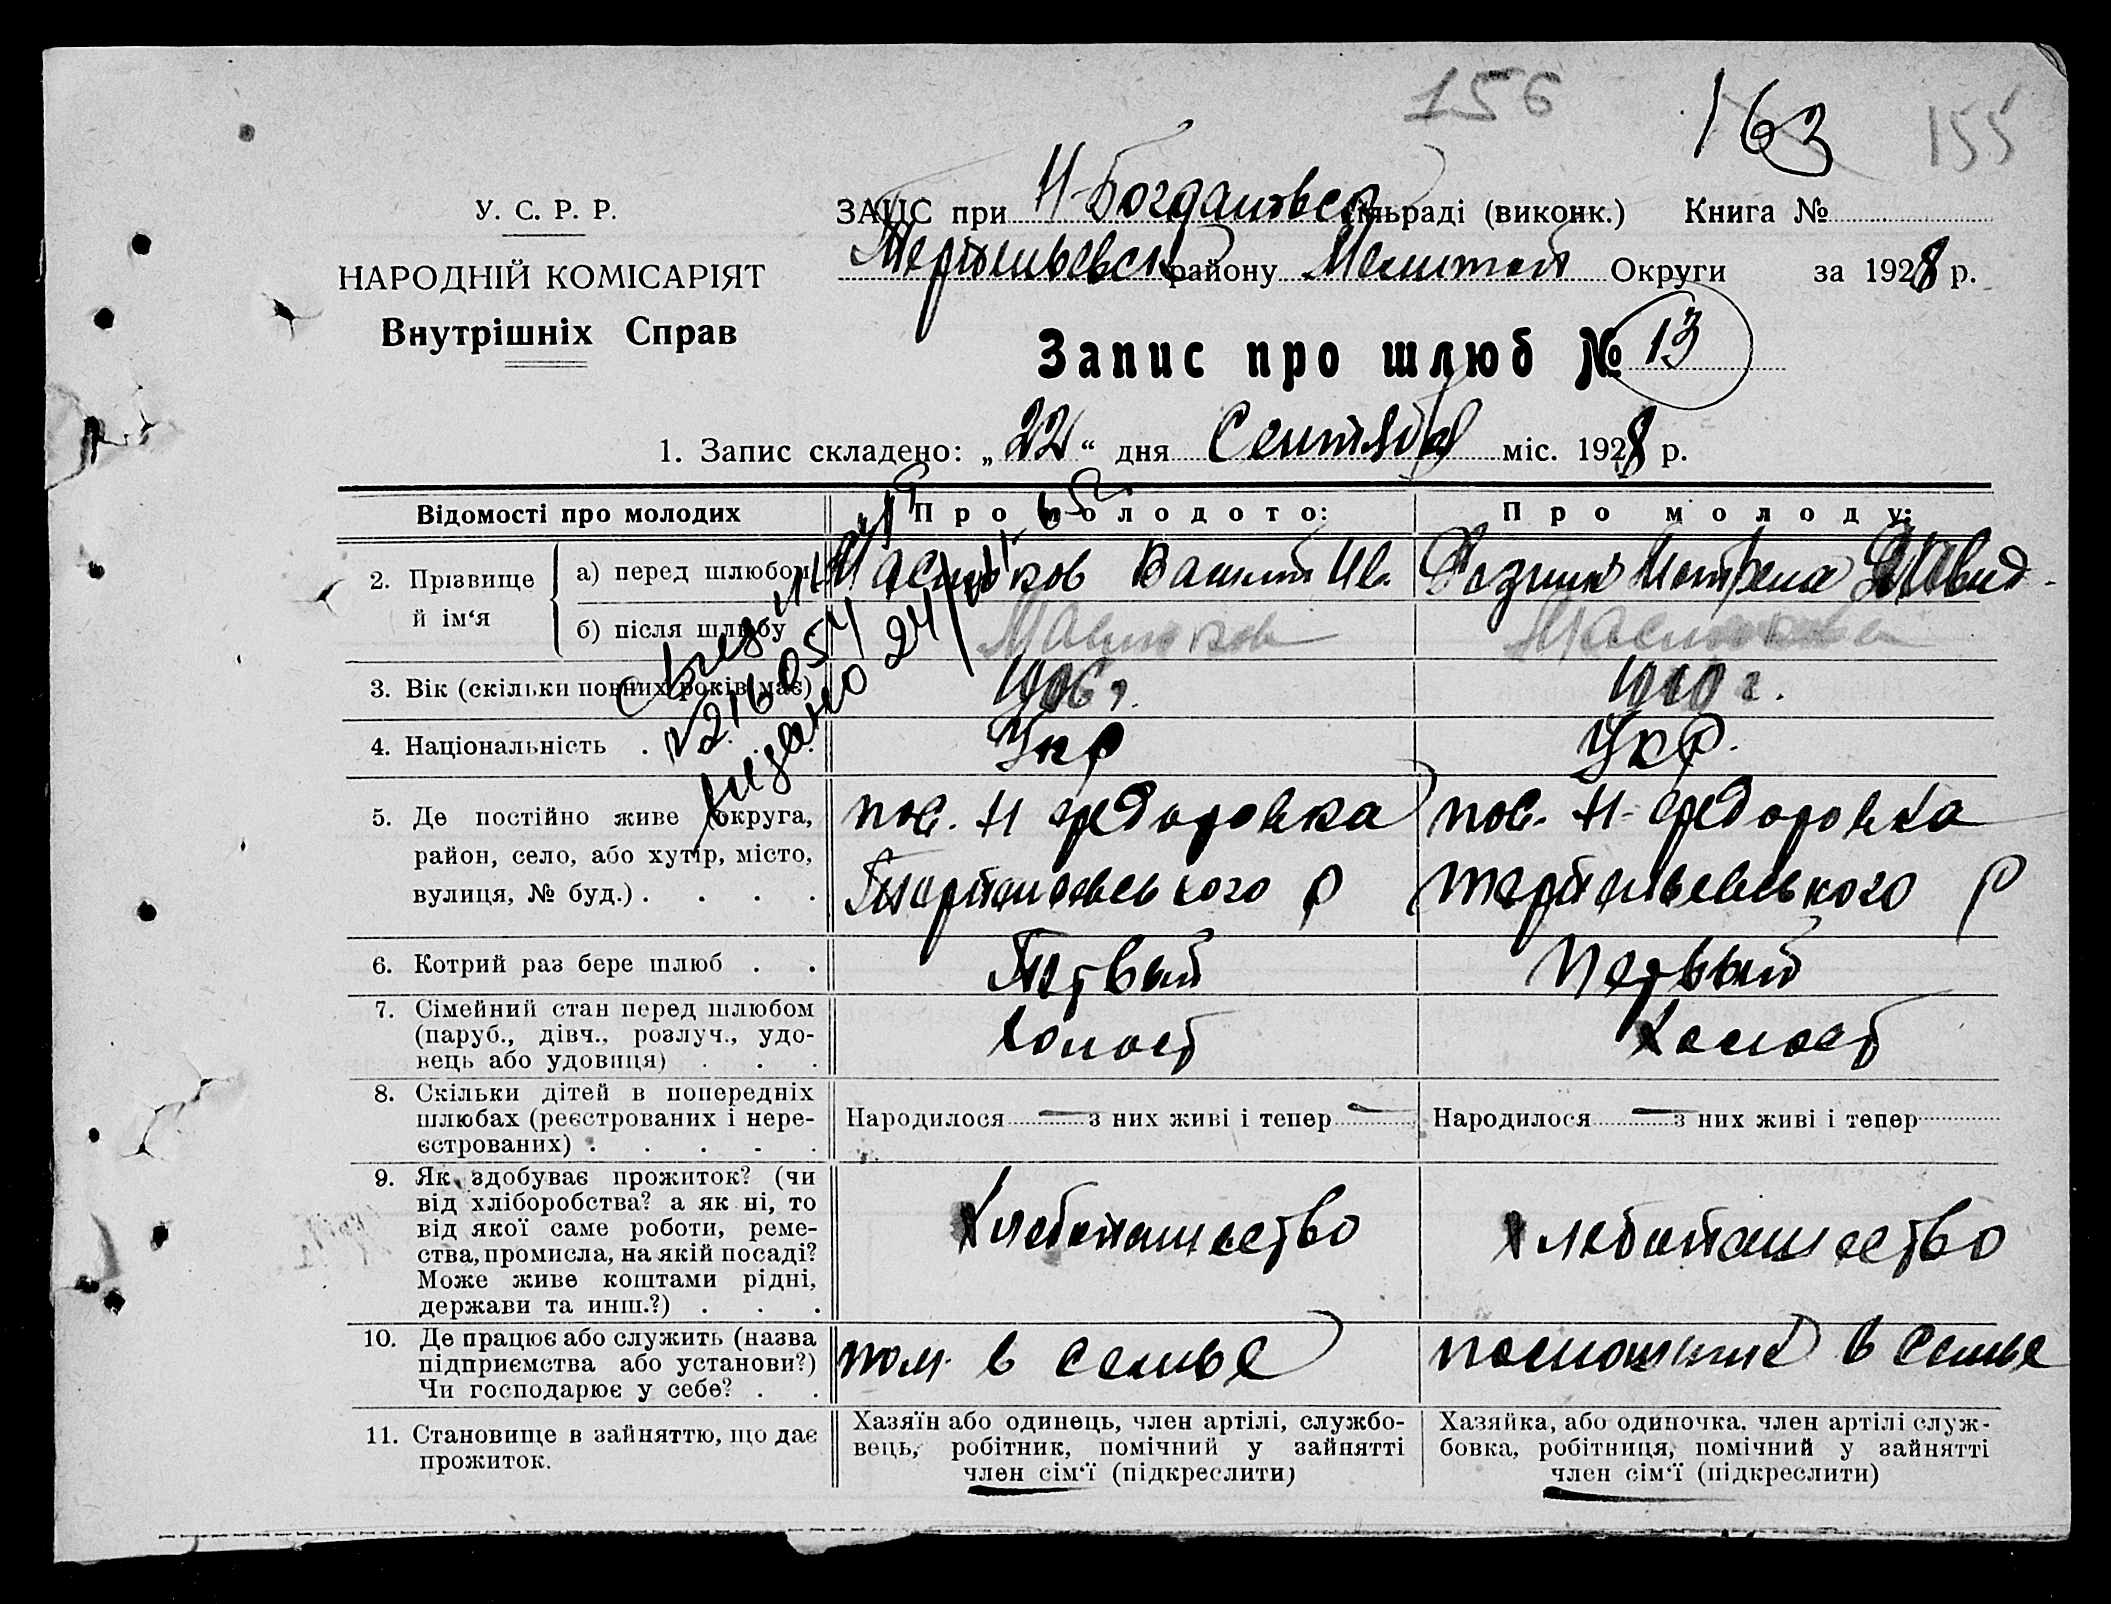 156
163
155
У. С. Р. Р.
НАРОДНІЙ КОМІСАРІЯТ
Внутрішніх Справ
ЗАЦС при Н-Богдановск сільраді (виконк.) Книга №
району Мелитоп Округи за 1928 р.
Запис про шлюб № 13
1. Запис складено: „22“ дня Сентяб міс. 1928 р.
Відомості про молодих
Про молодого:
Про молоду:
2. Прізвище й ім‘я
а) перед шлюбом
Василий Ив.
Мотрена
б) після шлюбу
3. Вік (скільки повних років має)
1906 г.
1910 г.
4. Національність
Укр
Укр.
5. Де постійно живе (округа, район, село, або хутір, місто, вулиця, № буд.)
пос. Н Федоровка
р
пос. Н-Федоровка
р
6. Котрий раз бере шлюб
Первый
Первый
7. Сімейний стан перед шлюбом (паруб., дівч., розлуч., удовець або удовиця)
Холост
Холост
8. Скільки дітей в попередніх шлюбах (реєстрованих і нереєстрованих)
Народилося — з них живі і тепер —
Народилося — з них живі і тепер
9. Як здобуває прожиток? (чи від хліборобства? а як ні, то від якої саме роботи, ремества, промисла, на якій посаді? Може живе коштами рідні, держави та инш.?)
Хлебопашество
Хлебопашество
10. Де працює або служить (назва підприємства або установи?) Чи господарює у себе?
пом. в семье
в семье
11. Становище в зайняттю, що дає прожиток.
Хазяїн або одинець, член артілі, службовець, робітник, помічний у зайнятті член сім‘ї (підкреслити)
Хазяйка, або одиночка, член артілі службовка, робітниця, помічний у зайнятті член сім‘ї (підкреслити)